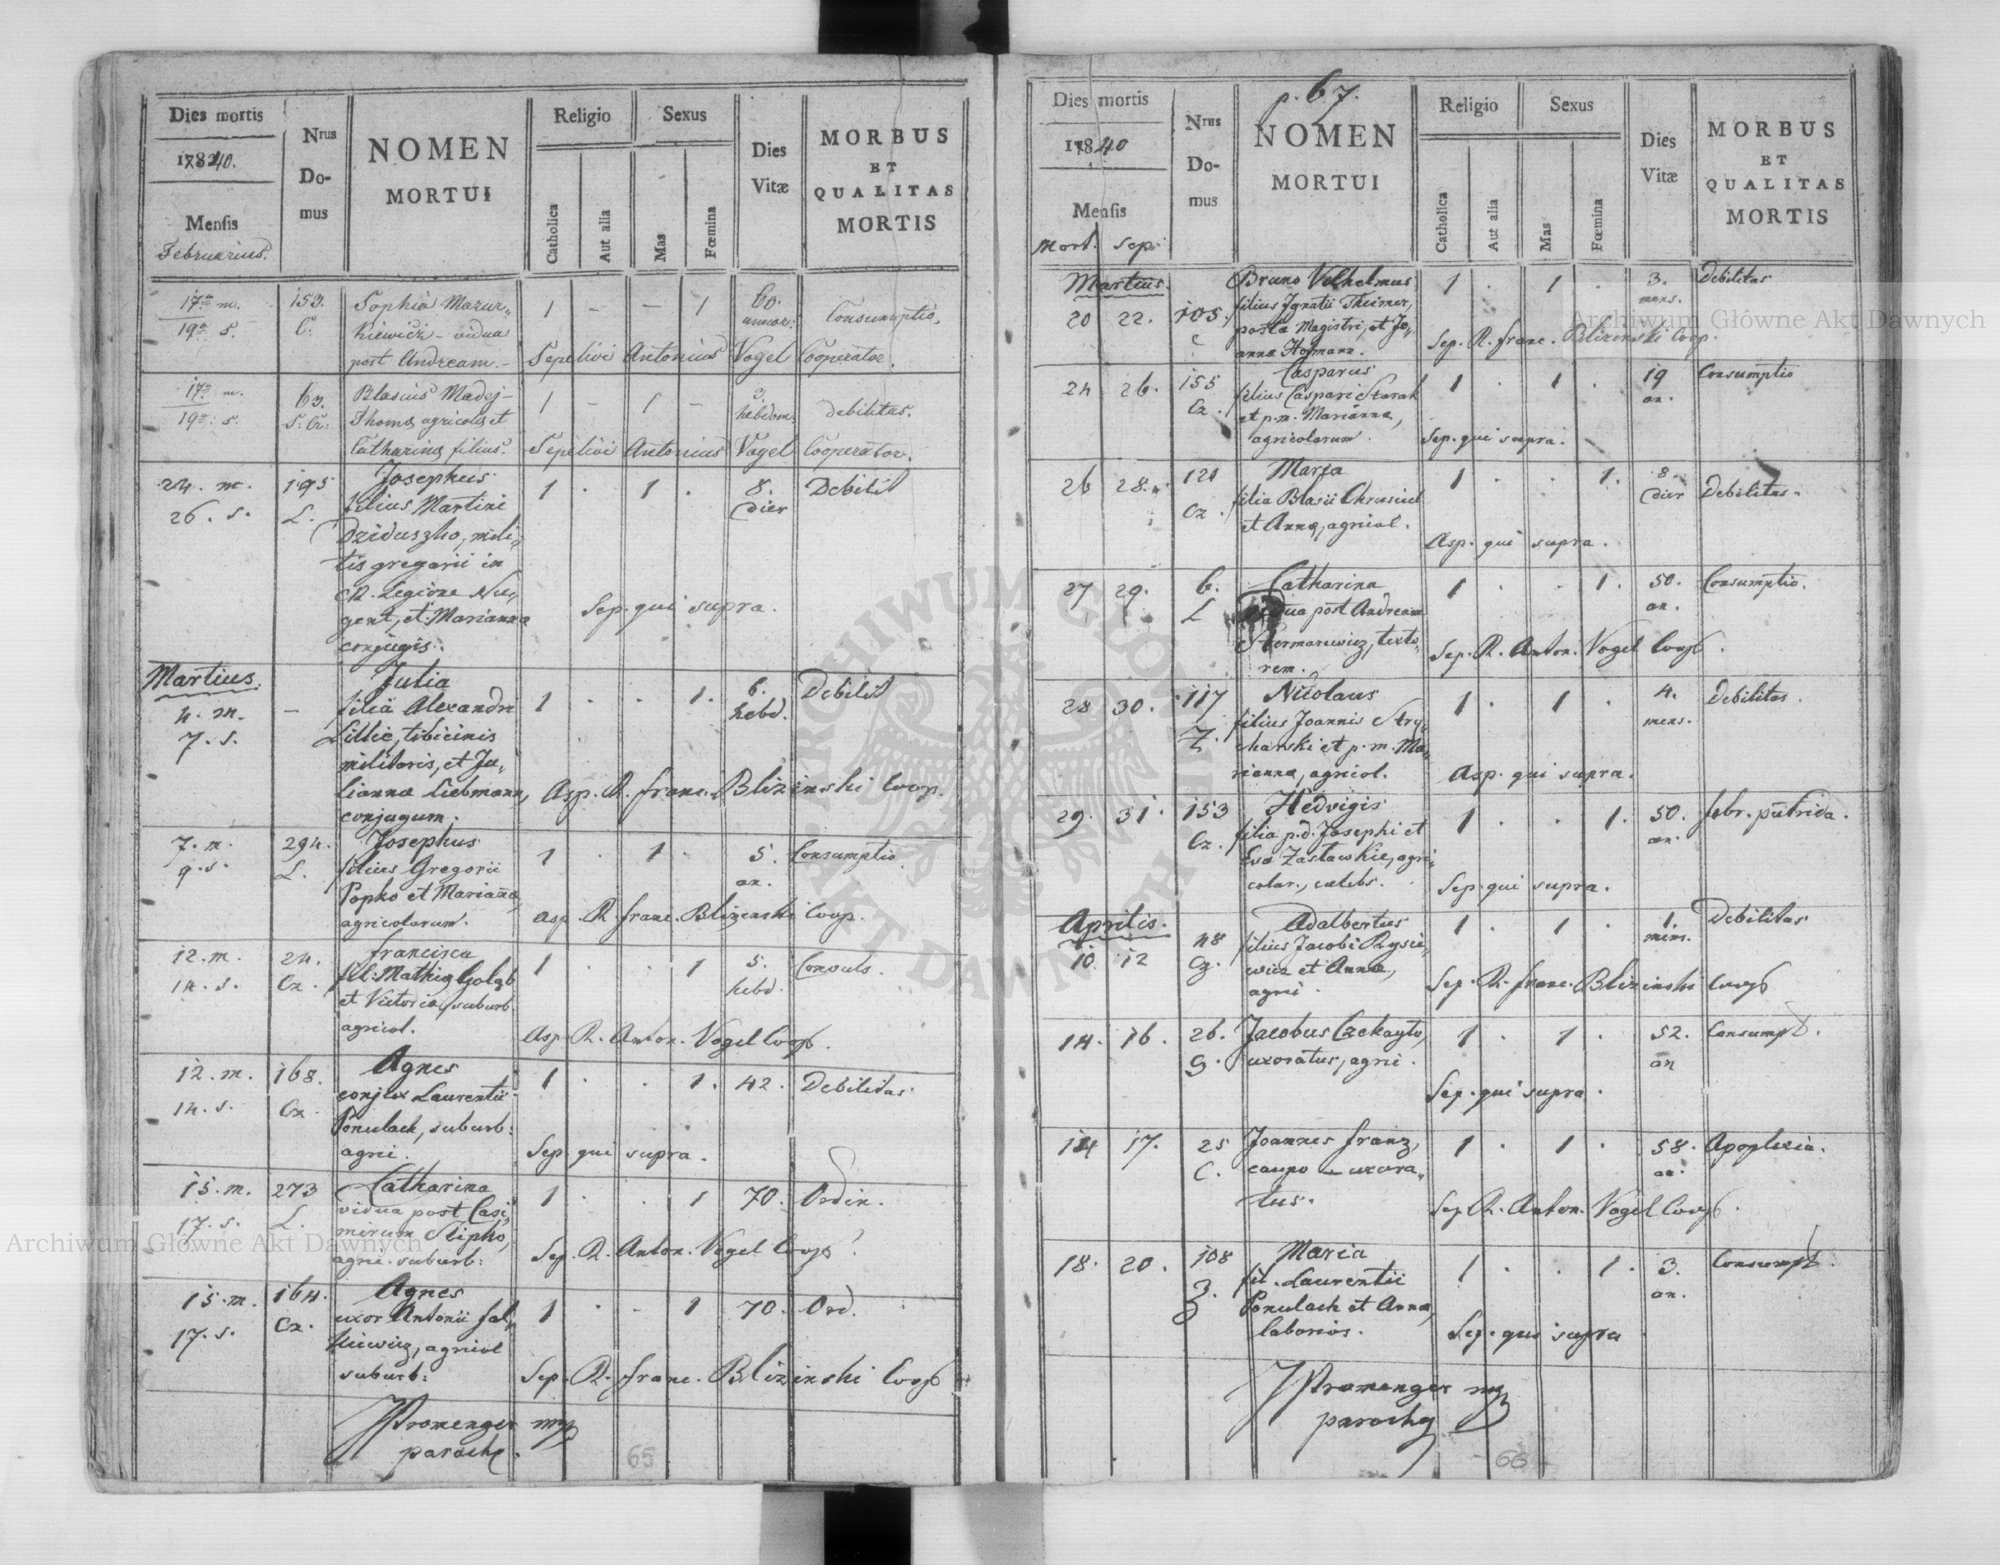 Dies mortis
17840.
Mensis
Februarius.
Nrus
Do-
mus
NOMEN
MORTUI
Religio
Catholica
Aut alia
Sexus
Mas
Fœmina
Dies
Vitæ
MORBUS
ET
QUALITAS
MORTIS
17a m. 153. Sophia Mazur- 1 - - 1 60. Consumptio.
19a s. C. kiewicz - vidua annor:
post Andream.- Sepelivi Antonius Vogel Cooperator.
17a m. 63. Blasius Madej- 1 - 1 - 3. debilitas.
19a s. S. Cz: Thomæ agricolæ et hebdom.
Catharinæ filius. Sepelivi Antonius Vogel Cooperator.
24. m. 195 Josephus 1 . 1 . 8. Debilit
26. s. L. filius Martini dier
Dziduszko, mili-
tis gregarii in
Legione Nu-
gent, et Marianna Sep. qui supra.
conjugis.
Martius. Julia
4. m. - filia Alexandri 1 . . 1. 6. Debilit
7. s. Littic, tibicinis hebd.
militaris, et Ju-
lianna Liebmann, Asp. R. franc. Blizinski Coop.
conjugum.
7. m. 294. Josephus 1 . 1 . 5. Consumptio
9. s. L. filius Gregorii an.
Popko et Marianna,
agricolarum. Asp. R. franc. Blizinski Coop.
12. m. 24. francisca 1 . . 1 5. Convuls.
14. s. Cz. fil: Mathiæ Gołąb hebd.
et Victoria, suburb
agricol. Asp. R. Anton. Vogel Coop.
12. m. 168. Agnes 1 . . 1. 42. Debilitas
14. s. Cz. conjux Laurentii
Ponulach, suburb:
agric. Sep qui supra.
15. m. 273 Catharina 1 . . 1 70. Ordin.
17. s. L. vidua post Casi-
mirum Stipko,
agric. suburb: Sep. R. Anton. Vogel Coop
15. m. 164. Agnes 1 . . 1 70. Ord.
17. s. Cz. uxor Antonii fal-
kiewicz, agricol
suburb: Sep. R. franc. Blizinski Coop
Promenger mp
paroch.
65
p. 67.
Dies mortis
17840
Mensis
Mort. Sep.
Nrus
Do-
mus
NOMEN
MORTUI
Religio
Catholica
Aut alia
Sexus
Mas
Fœmina
Dies
Vitæ
MORBUS
ET
QUALITAS
MORTIS
Martius. Bruno Vilhelmus 1 . 1 . 3. Debilitas
20 22. 105. filius Ignatii Theimer, mens.
c posta Magistri, et Jo-
anna Hofmann. Sep. R. franc. Blizinski Coop.
24 26. 155 Casparus 1 . 1 . 19 Consumptio
Cz. filius Caspari Starak an.
et p.m. Marianna,
agricolarum. Sep. qui supra.
26 28. 121 Maria 1 . . 1. 8. Debilitas.
Cz. filia Blasii Chrusciel dier
et Anna, agricol. Asp. qui supra.
27 29. 6. Catharina 1 . . 1. 50. Consumptio.
L vidua post Andream an.
Hermanowicz, texto-
rem. Sep. R. Anton. Vogel Coop.
28 30. 117 Nicolaus 1 . 1 . 4. Debilitas.
Z. filius Joannis Stry- mens.
charski et p. m. Ma-
rianna, agricol. Asp. qui supra.
29. 31. 153 Hedvigis 1 . . 1. 50. febr. putrida.
Cz. filia p.d. Josephi et an.
Eva Zasławskie, agri-
colar., cælebs. Sep. qui supra.
Aprilis. Adalbertus 1 . 1 . 1. Debilitas
10. 12 48 filius Jacobi Rysie- mens.
Cz. wicz et Anna,
agric. Sep. R. franc. Blizinski Coop
14. 16. 26. Jacobus Czekayto 1 . 1 . 52. Consumpt.
S. uxoratus, agric. an
Sep. qui supra.
14 17. 25 Joannes franz, 1 . 1 . 58. Apoplexia.
C. caupo - uxora- an.
tus. Sep R. Anton. Vogel Coop.
18. 20. 108 Maria 1 . . 1. 3. Consumpt.
Z. fil. Laurentii an.
Ponulach et Anna,
laborios. Sep. qui supra
Promenger mp
parochg
66
Archiwum Główne Akt Dawnych
Archiwum Główne Akt Dawnych
ARCHIWUM GŁÓWNE AKT DAWNYCH